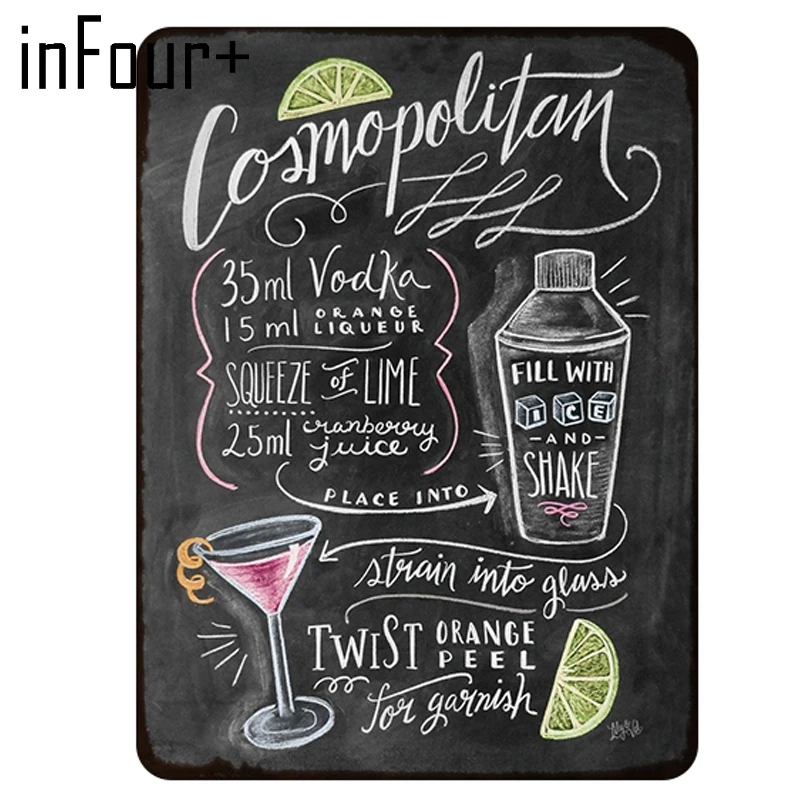 inFour+
Cosmopolitan
35ml Vodka
15 ml ORANGE
LIQUEUR
SQUEEZE OF LIME
25ml cranberry
juice
PLACE INTO
FILL WITH
ICE
-AND-
SHAKE
strain into glass
TWIST ORANGE
PEEL
for garnish